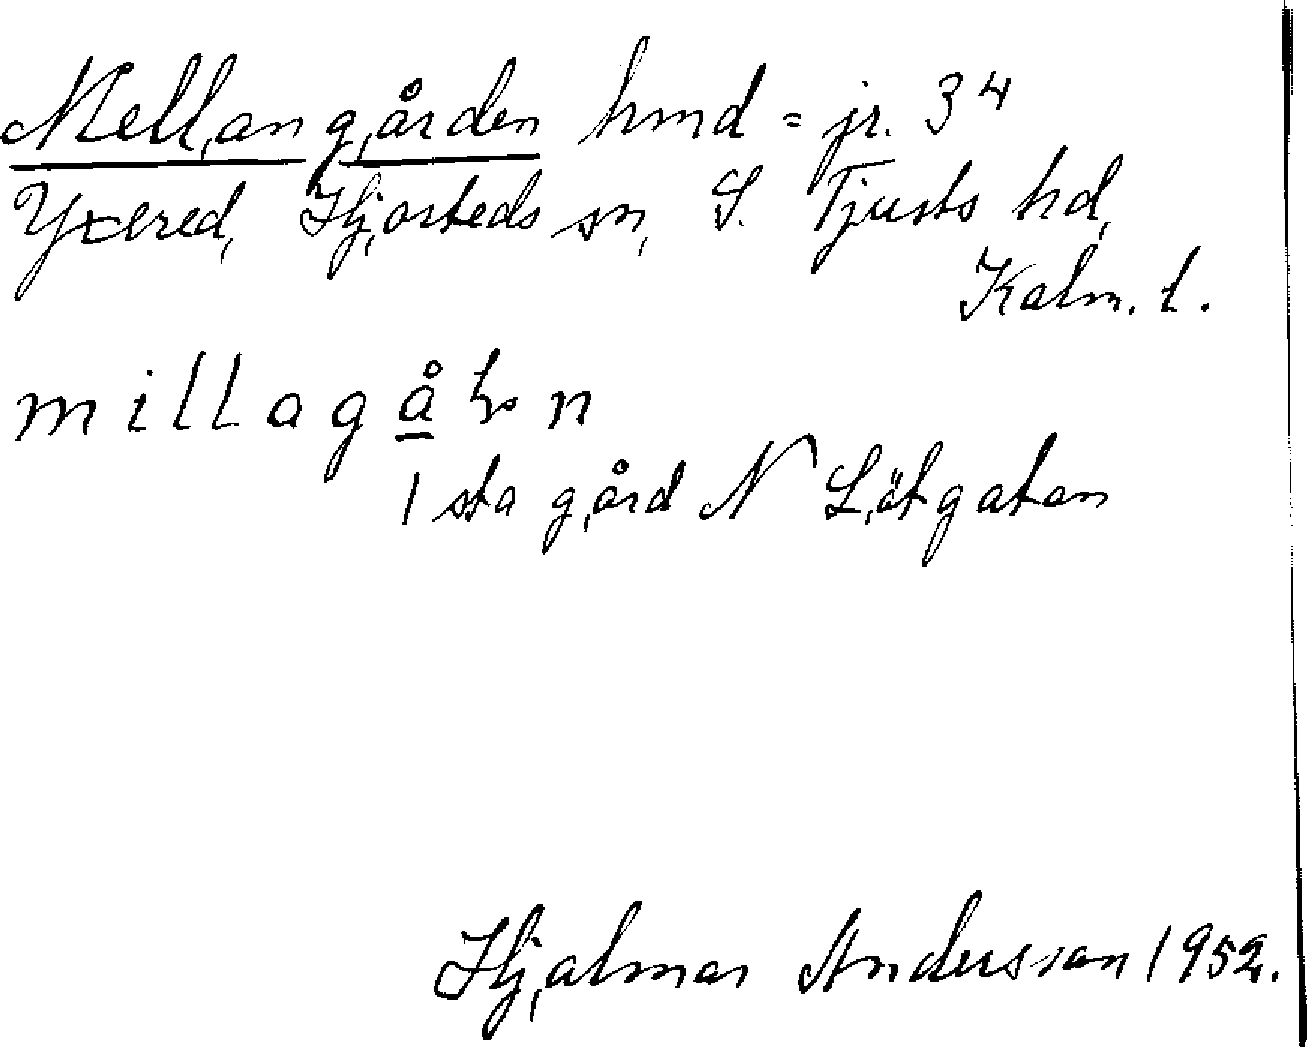 Mellangården hmd = jr. 3⁴
Yxered, Hjorteds sn, S. Tjusts hd,
Kalm. l.
millagå n
1 sta gård N Lötgatan
Hjalmar Andersson 1952.